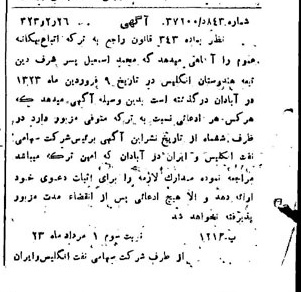 شماره ۸۴۳د/۳۷۱۰۰ آگهی ۲ر۲۶ر۳۲۳
نظر بماده ۳۴۳ قانون راجع به ترکه اتباع بیگانه
عموم را آگاهی میدهد که محمد اسمعیل پسر شرف دین
تبعه هندوستان انگلیس در تاریخ ۹ فروردین ماه ۱۳۲۳
در آبادان درگذشته است بدین وسیله آگهی میدهد که
هرکس هر ادعائی نسبت به ترکه متوفی مزبور دارد در
ظرف ششماه از تاریخ نشر این آگهی برئیس شرکت سهامی
نفت انگلیس و ایران در آبادان که امین ترکه میباشد
مراجعه نموده مدارک لازمه را برای اثبات دعوی خود
ارائه دهد و الا هیچ ادعائی پس از انقضاء مدت مزبور
پذیرفته نخواهد شد
پ ۱۲۱۲ نوبت سوم ۱ مرداد ماه ۲۳
از طرف شرکت سهامی نفت انگلیس و ایران